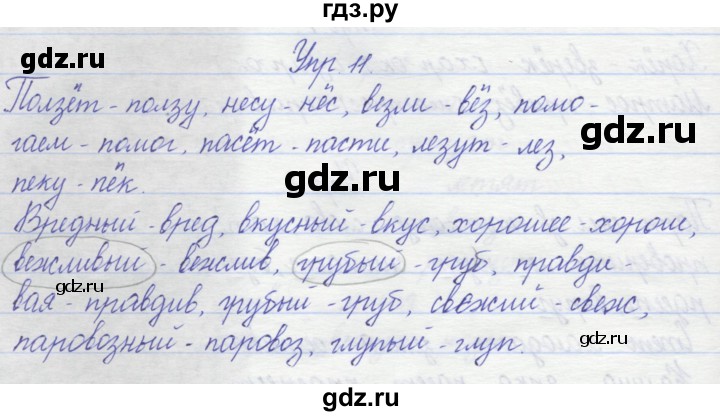 гдз.ру
gdz.ru
gdz.ru
Упр 11
Ползёт - ползу, несу - нёс, везли - вёз, помо-
gdz.ru
gdz.ru
гаем - помог, пасёт - пасти, лезут - лез,
пеку - пёк.
gdz.ru
Вредный - вред, вкусный - вкус, хорошее - хорош,
вежливый - вежлив, грубый - груб, правди-
gdz.ru
gdz.ru
вая - правдив, грубый - груб, свежий - свеж,
паровозный - паровоз, глупый - глуп.
gdz.ru
gdz.ru
gdz.ru